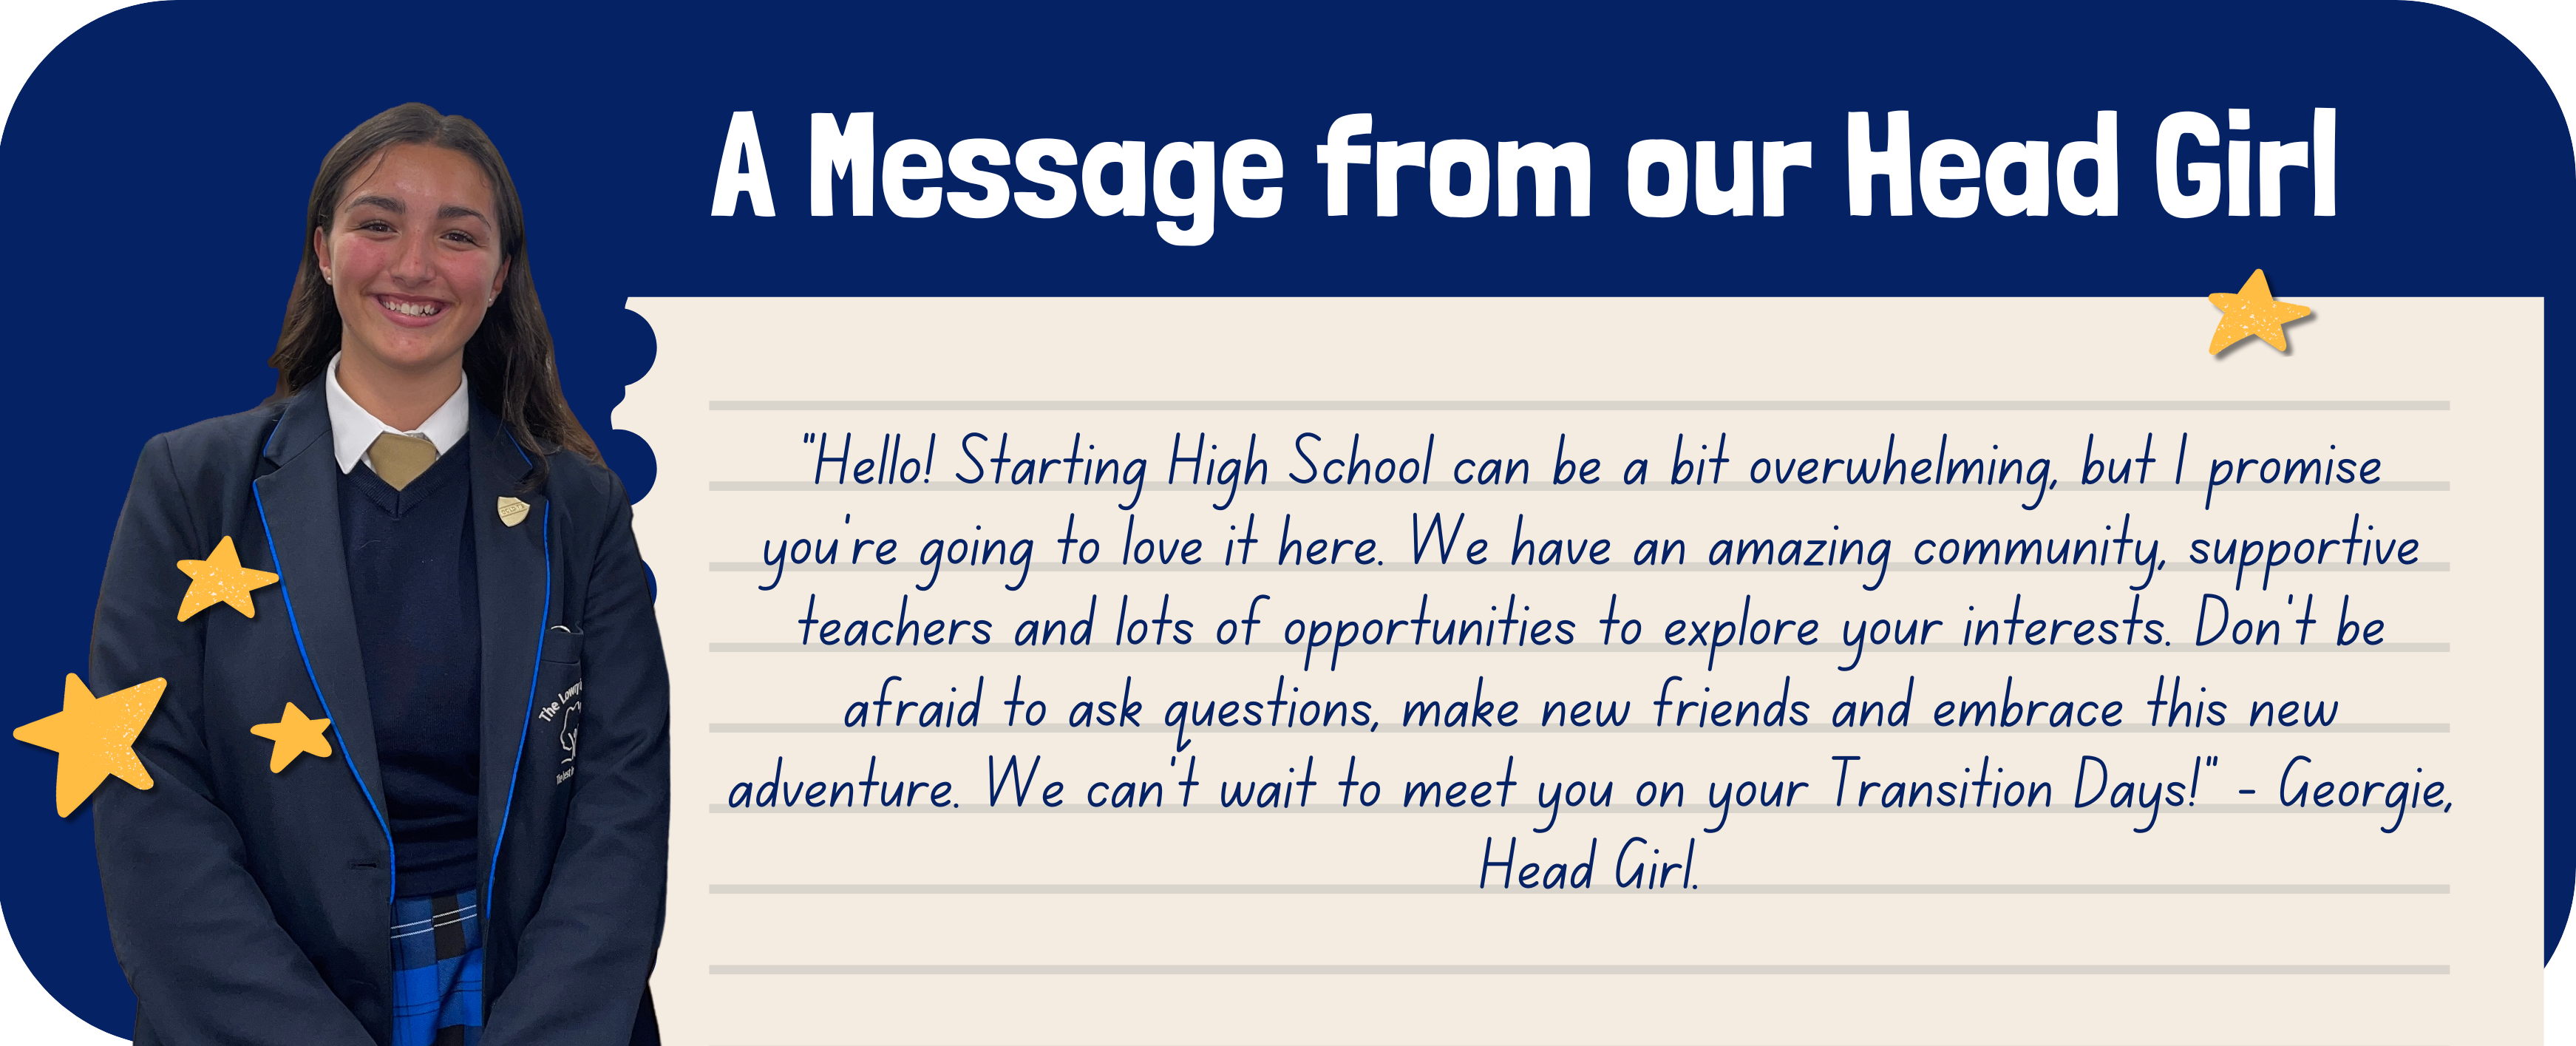 A Message from our Head Girl
"Hello! Starting High School can be a bit overwhelming, but I promise
you're going to love it here. We have an amazing community, supportive
teachers and lots of opportunities to explore your interests. Don't be
afraid to ask questions, make new friends and embrace this new
adventure. We can't wait to meet you on your Transition Days!" - Georgie,
Head Girl.
The Lowry
The best